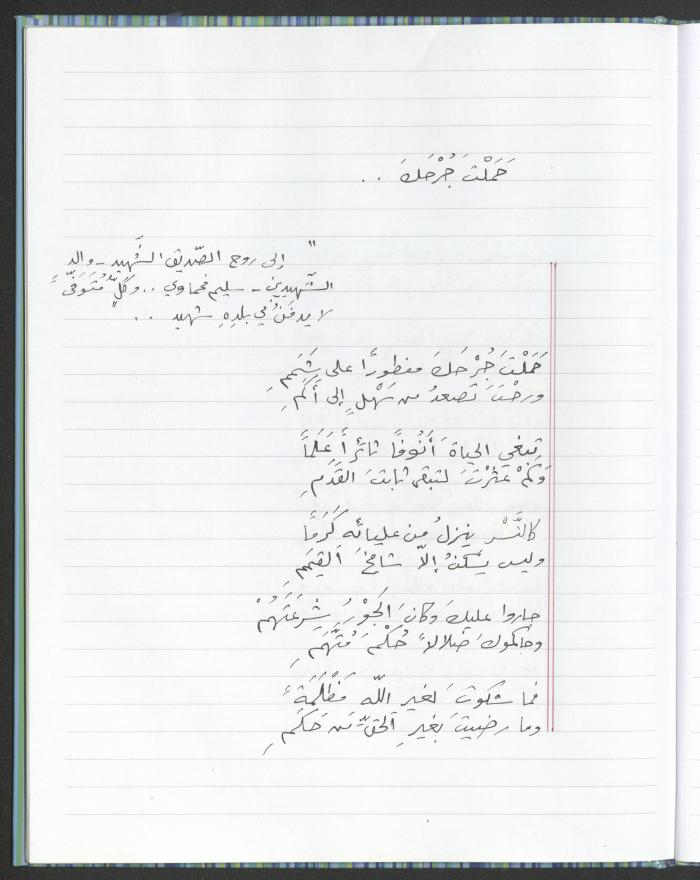 حَمَلْتَ جُرْحَكَ ..
" إلى روح الصّديق الشَّهيد - والد
الشَّهيدين - سليم فحماوي .. وكلُّ مُتَوَفًّى
لا يدفَنُ في بلدِهِ شهيد .. "
حَمَلْتَ جُرْحَكَ مفطورًا على شَمَمِ
ورحْتَ تصعدُ من سَهْلٍ إلى أَكَمِ
تبغي الحياةَ أَنُوفًا ثائرًا عَلَمًا
وَكَمْ عَثَرْتَ لتبقى ثابتَ القَدَمِ
كالنَّسْرِ ينزلُ من عليائه كَرَمًا
وليس يسْكنُ إلّا شامخَ القِمَمِ
جاروا عليكَ وكانَ الجَوْرُ شِرْعَتَهُمْ
وحاكموكَ ضلالاً حُكْمَ مُتَّهَمِ
فما شكوتَ لغيرِ اللّه مَظْلَمَةً
وما رضيتَ بغيرِ الحقِّ من حَكَمِ